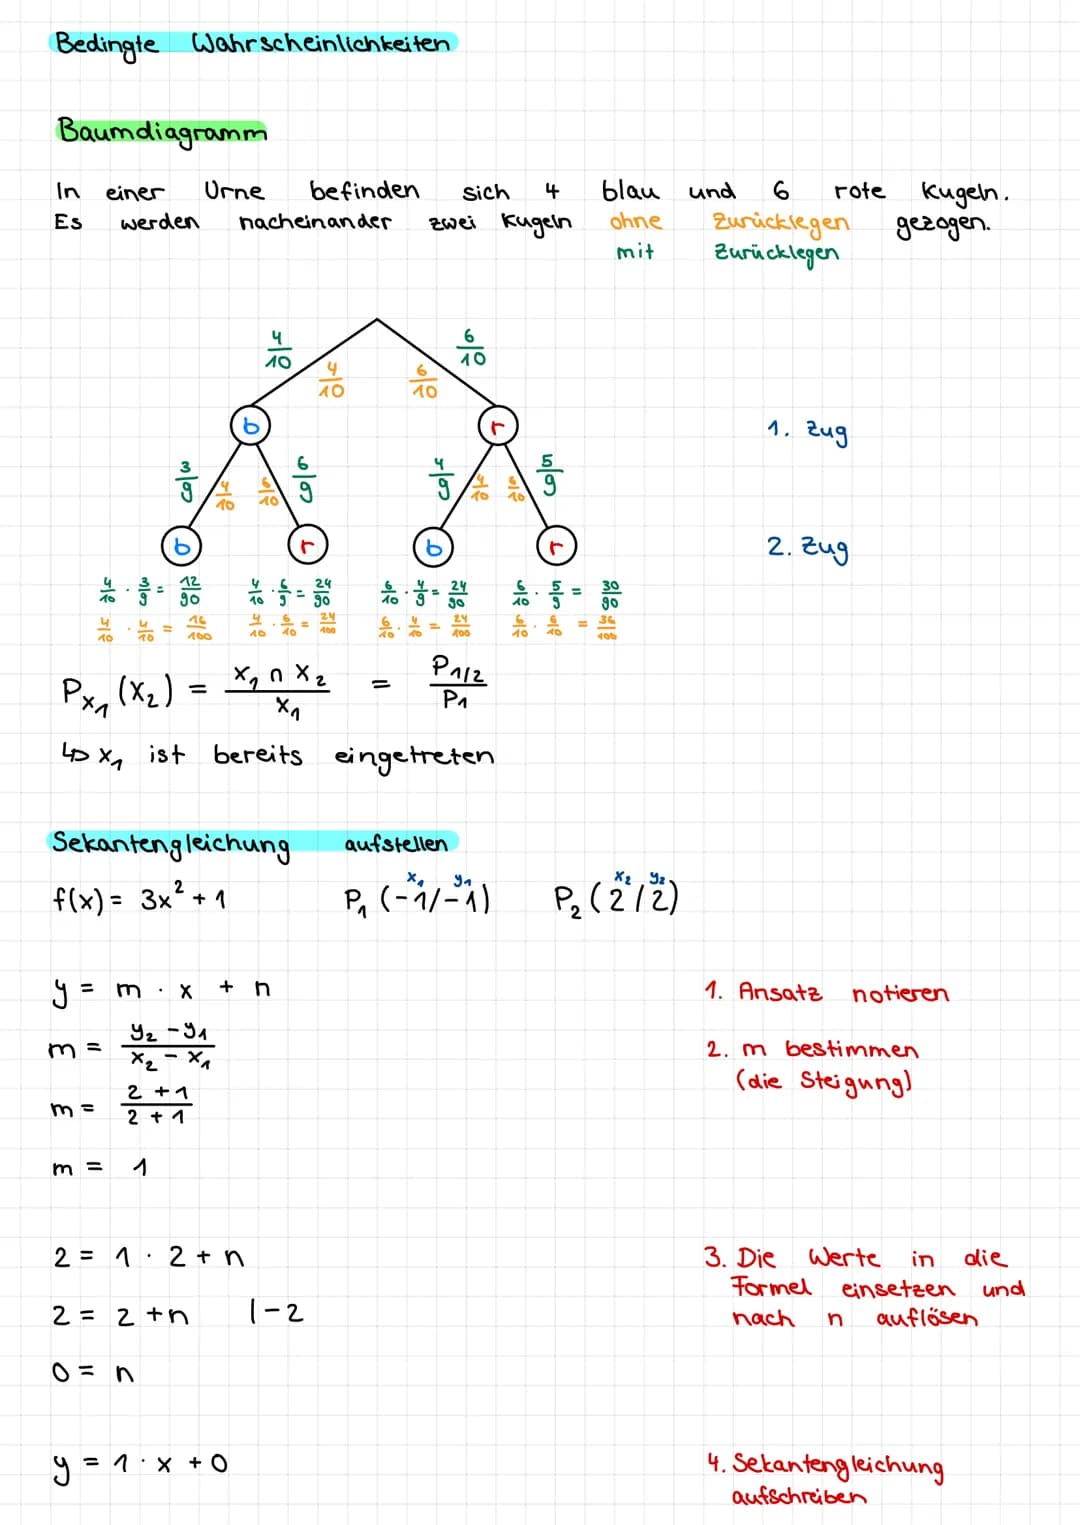 Bedingte Wahrscheinlichkeiten
Baumdiagramm
In einer Urne befinden sich 4 blau und 6 rote Kugeln.
Es werden nacheinander zwei Kugeln ohne Zurücklegen gezogen.
mit Zurücklegen
4/10 6/10
4/10 6/10
b r 1. Zug
3/9 4/10 6/10 6/9 4/9 4/10 6/10 5/9
b r b r 2. Zug
4/10 · 3/9 = 12/90 4/10 · 6/9 = 24/90 6/10 · 4/9 = 24/90 6/10 · 5/9 = 30/90
4/10 · 4/10 = 16/100 4/10 · 6/10 = 24/100 6/10 · 4/10 = 24/100 6/10 · 6/10 = 36/100
Pₓ₁(x₂) = x₁ ∩ x₂ / x₁ = P₁/₂ / P₁
↳ x₁ ist bereits eingetreten
Sekantengleichung aufstellen
x₁ y₁ x₂ y₂
f(x) = 3x² + 1 P₁ (-1/-1) P₂ (2/2)
y = m · x + n 1. Ansatz notieren
m = y₂ - y₁ / x₂ - x₁ 2. m bestimmen
(die Steigung)
m = 2 + 1 / 2 + 1
m = 1
2 = 1 · 2 + n 3. Die Werte in die
Formel einsetzen und
2 = 2 + n |-2 nach n auflösen
0 = n
y = 1 · x + 0 4. Sekantengleichung
aufschreiben